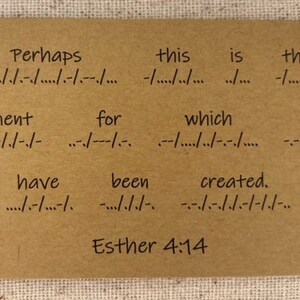 Perhaps this is th
././.-./..../.-/.--./... -/..../../... ../... -/...
ment for which
/./-./- ..-./---/.-. .--/..../../-.-./....
have been created.
..../.-/...-/. -..././././-. -.-./.-././.-/-/./-..
Esther 4:14